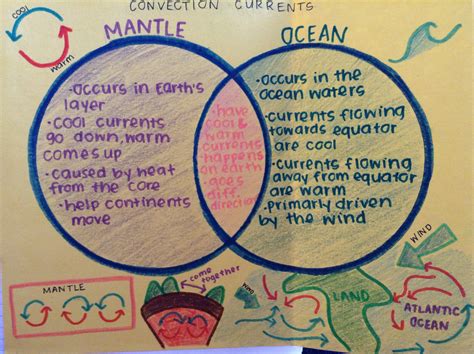 CONVECTION CURRENTS
COOL
warm
MANTLE
OCEAN
•occurs in Earth's
layer
•cool currents
go down, warm
comes up
•caused by heat
from the core
•help continents
move
•have
cool &
warm
currents
•happens
on earth
•goes
diff.
directions
•occurs in the
ocean waters
•currents flowing
towards equator
are cool
•currents flowing
away from equator
are warm
•primarily driven
by the wind
MANTLE
come
together
WIND
LAND
WIND
ATLANTIC
OCEAN